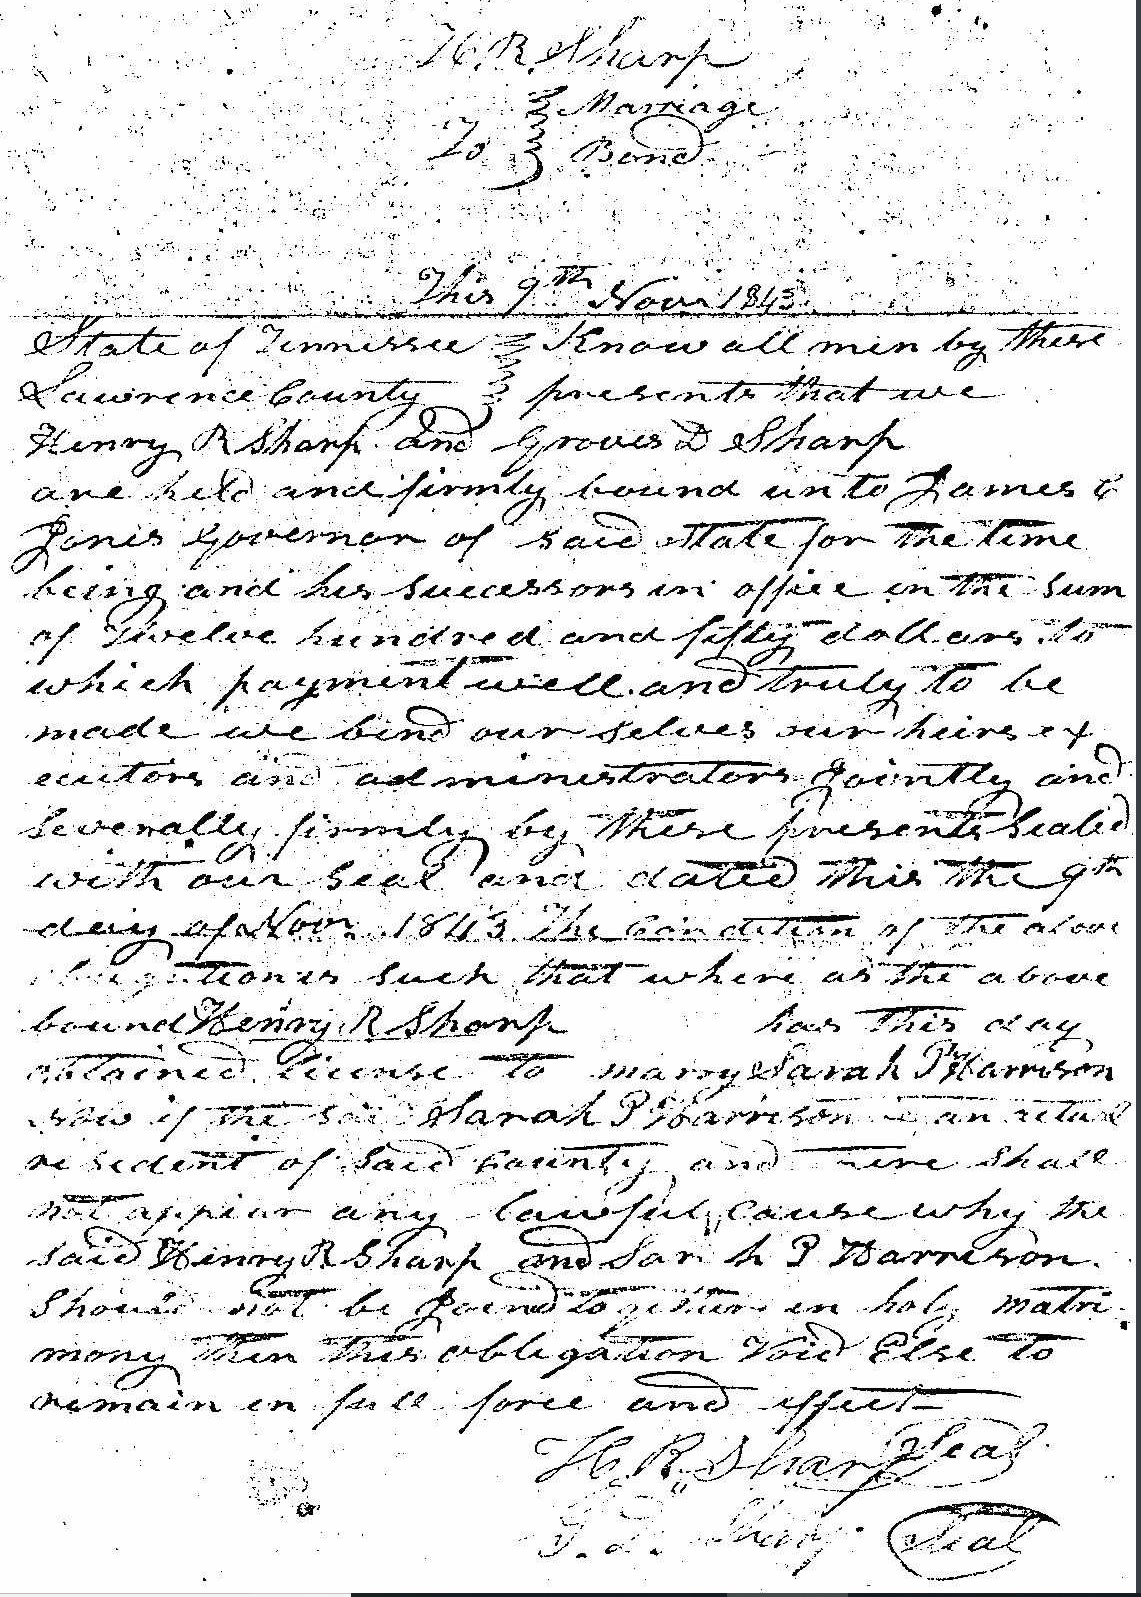 H. R. Sharp
Marriage
To Bond
This 9th Novr 1843
State of Tennessee Know all men by these
Lawrence County presents that we
Henry R Sharp and Groves D Sharp
are held and firmly bound unto James C
Jones Governor of said state for the time
being and his successors in office in the sum
of Twelve hundred and fifty dollars to
which payment well and truly to be
made we bind our selves our heirs ex
ecutors and administrators Jointly and
severally firmly by these presents Sealed
with our seal and dated this the 9th
day of Novr 1843 The Condition of the above
obligation is such that where as the above
bound Henry R Sharp has this day
obtained license to marry Sarah P Harrison
now if the said Sarah P Harrison is an actual
resident of said County and there shall
not appear any lawful cause why the
said Henry R Sharp and Sarah P Harrison
should not be Joined together in holy matri
mony then this obligation Void Else to
remain in full force and effect
H. R. Sharp Seal
G. D. Sharp Seal